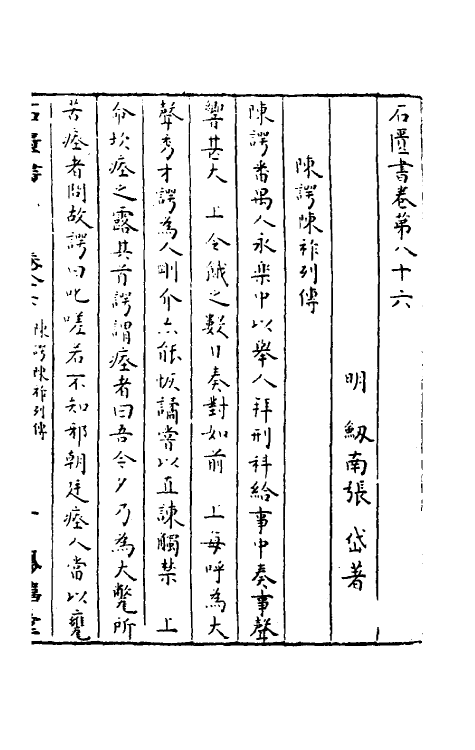 石匱書卷第八十六
明 釼南張 岱著
陳諤陳祚列傳
陳諤番禺人永樂中以舉人拜刑科給事中奏事聲
響甚大 上令餓之數日奏對如前 上每呼為大
聲秀才諤為人剛介亦能恢譎嘗以直諫觸禁 上
命坎瘞之露其首諤謂瘞者曰吾今夕乃為大蹩所
苦瘞者問故諤曰叱嗟若不知邪朝廷瘞人當以甕
石匱書 陳諤陳祚列傳 一